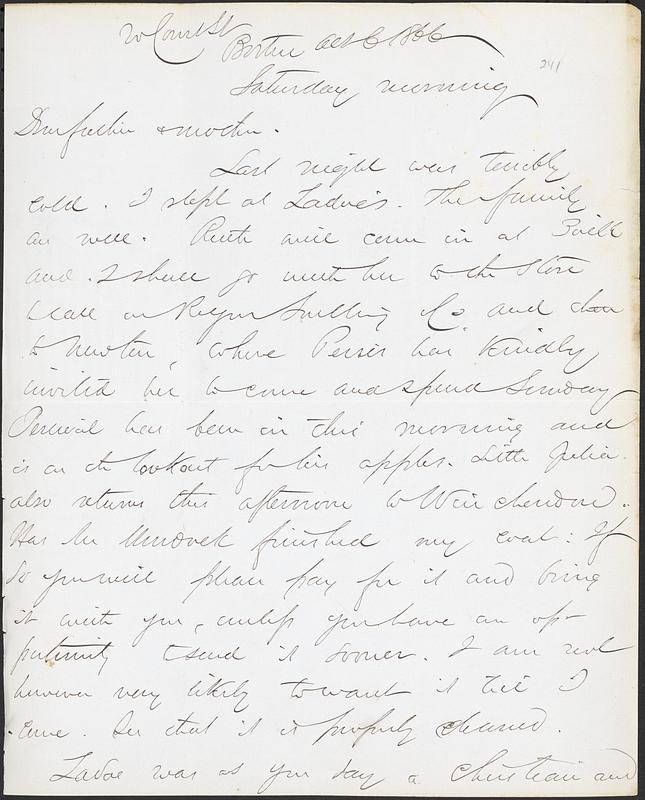 20 Court St
Boston Oct 6 1866
241
Saturday morning
Dear father & mother.
Last night was terribly
cold. I slept at Zadoc's. The family
are well. Ruth will come in at
and I shall go with her to the Store
to call on & Co. and then
to Newton, where Persis has kindly
invited her to come and spend Sunday
Percival has been in this morning and
is on the lookout for his apples. Little Julia
also returns this afternoon to Winchendon.
Has Mr Murdock finished my coat: If
so you will please pay for it and bring
it with you, unless you have an op-
portunity to send it sooner. I am not
however very likely to want it till I
come. See that it is properly cleaned.
Zadoc was as you say a Christian and